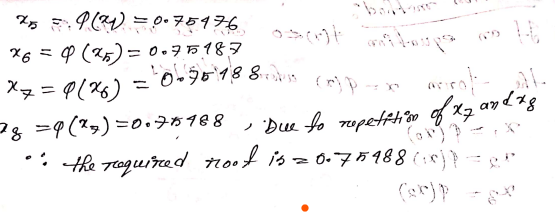 x₅ = φ(x₄) = 0.75476
x₆ = φ(x₅) = 0.75487
x₇ = φ(x₆) = 0.75488
x₈ = φ(x₇) = 0.75488 , Due to repetition of x₇ and x₈
∴ the required root is = 0.75488